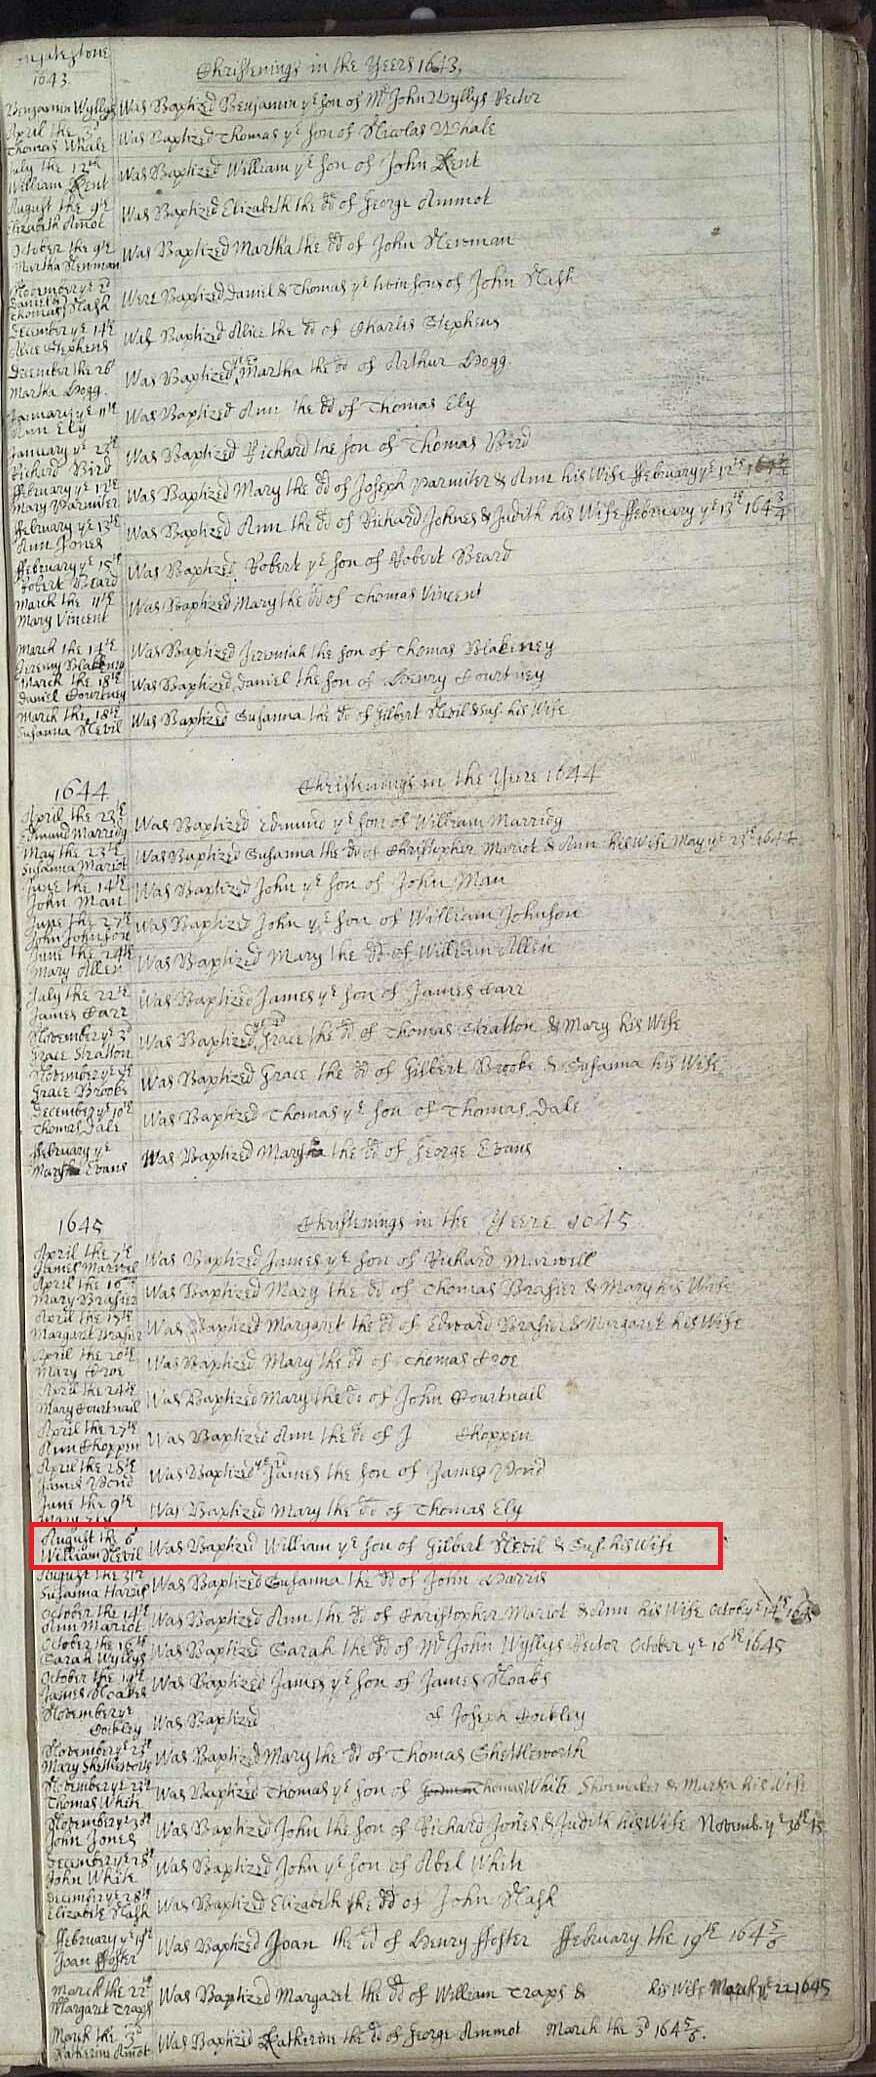 Ingatestone
1643
Christenings in the Yeers 1643,
Benjamin Wyllys Was Baptized Benjamin ye son of Mr John Wyllys Rector
April the 3d
Thomas Whale Was Baptized Thomas ye son of Nicolas Whale
July the 12th
William Kent Was Baptized William ye son of John Kent
August the 9th
Elizabeth Amot Was Baptized Elizabeth the dd of George Ammot
October the 9th
Martha Newman Was Baptized Martha the dd of John Newman
November ye 2d
Daniel &
Thomas Nash Were Baptized Daniel & Thomas ye twin sons of John Nash
December ye 14th
Alice Stephens Was Baptized Alice the dd of Charles Stephens
December the 26
Martha Hogg. Was Baptized Martha the dd of Arthur Hogg.
January ye 11th
Ann Ely Was Baptized Ann the dd of Thomas Ely
January ye 23th
Richard Bird Was Baptized Richard the son of Thomas Bird
ffebruary ye 12th
Mary Parmiter Was Baptized Mary the dd of Joseph Parmiter & Ann his Wife ffebruary ye 12th 164
ffebruary ye 13th
Ann Jones Was Baptized Ann the dd of Richard Johnes & Judith his Wife ffebruary ye 13th 164 3/4
ffebruary ye 15th
Robert Beard Was Baptized Robert ye son of Robert Beard
March the 11th
Mary Vincent Was Baptized Mary the dd of Thomas Vincent
March the 14th
Jeremy Blakeney Was Baptized Jeremiah the son of Thomas Blakeney
March the 18th
Daniel Courtney Was Baptized Daniel the son of Henry Courtney
March the 18th
Susanna Nevil Was Baptized Susanna the dd of Gilbert Nevil & Sus. his Wife
1644
Christenings in the Yeere 1644
April the 23th
Edmund Marridg Was Baptized Edmund ye son of William Marridg
May the 23th
Susanna Mariot Was Baptized Susanna the dd of Christopher Mariot & Ann his Wife May ye 23th 1644
June the 14th
John Man Was Baptized John ye son of John Man
June the 27th
John Johnson Was Baptized John ye son of William Johnson
June the
Mary Allen Was Baptized Mary the dd of William Allen
July the 22th
James Carr Was Baptized James ye son of James Carr
November ye 3d
Grace Stratton Was Baptized Grace the dd of Thomas Stratton & Mary his Wife
November ye
Grace Brooke Was Baptized Grace the dd of Gilbert Brooke & Susanna his Wife
December ye 10th
Thomas Dale Was Baptized Thomas ye son of Thomas Dale
ffebruary ye
Martha Evans Was Baptized Martha the dd of George Evans
1645
Christenings in the Yeere 1645
April the 7th
James Marwel Was Baptized James ye son of Richard Marwell
April the 16
Mary Brasier Was Baptized Mary the dd of Thomas Brasier & Mary his Wife
April the 17th
Margaret Brasier Was Baptized Margaret the dd of Edward Brasier & Margaret his Wife
April the 20th
Mary Croe Was Baptized Mary the dd of Thomas Croe
April the 24th
Mary Courtnail Was Baptized Mary the dd of John Courtnail
April the 27th
Ann Choppen Was Baptized Ann the dd of J Choppen
April the 28th
James Bond Was Baptized James the son of James Bond
June the 9th
Mary Ely Was Baptized Mary the dd of Thomas Ely
August the 6
William Nevil Was Baptized William ye son of Gilbert Nevil & Sus. his Wife
August the 31th
Susanna Harris Was Baptized Susanna the dd of John Harris
October the 14th
Ann Mariot Was Baptized Ann the dd of Christopher Mariot & Ann his Wife Octob ye 14th 1645
October the 16th
Sarah Wyllys Was Baptized Sarah the dd of Mr John Wyllys Rector October ye 16th 1645
October the 19th
James Noakes Was Baptized James ye son of James Noaks
November ye
Cockley Was Baptized of Joseph Cockley
November ye 23d
Mary Shettleworth Was Baptized Mary the dd of Thomas Shettleworth
November ye 23th
Thomas White Was Baptized Thomas ye son of Thomas White Shoemaker & Martha his Wife
November ye 30th
John Jones Was Baptized John the son of Richard Jones & Judith his Wife Novemb. ye 30th 45
December ye 28th
John White Was Baptized John ye son of Abel White
December ye 28th
Elizabeth Nash Was Baptized Elizabeth the dd of John Nash
ffebruary ye 19th
Joan ffoster Was Baptized Joan the dd of Henry ffoster ffebruary the 19th 164 5/6
March the 22th
Margaret Traps Was Baptized Margaret the dd of William Traps & his Wife March ye 22 1645
March the 3d
Katherin Amot Was Baptized Katherin the dd of George Ammot March the 3d 164 5/6.